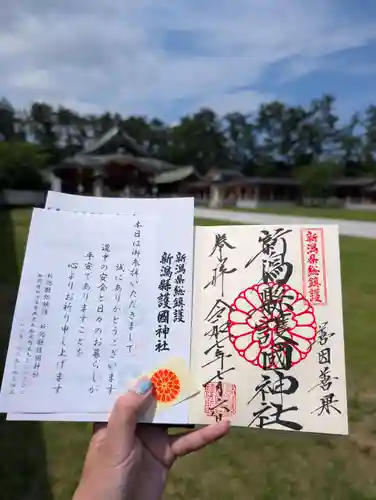 新潟縣総鎮護
善因善果
新潟縣護國神社
奉拝
令和七年七月
新潟縣総鎮護
新潟縣護國神社
本日は御参拝いただきまして
誠にありがとうございます
道中の安全と日々のお暮らしが
平安でありますことを
心よりお祈り申し上げます
護國神社